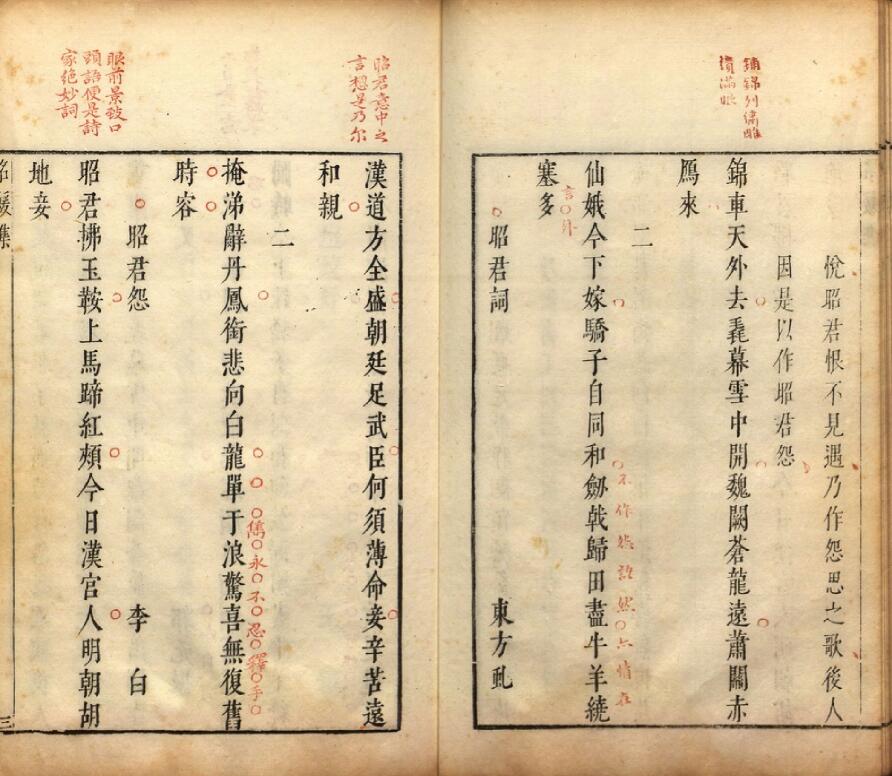 鋪錦列繡雕
繢滿眼
悅昭君恨不見遇乃作怨思之歌後人
因是以作昭君怨
錦車天外去毳幕雪中開魏闕蒼龍遠蕭關赤
鴈來
二
仙娥今下嫁驕子自同和劒戟歸田盡牛羊繞
不作怨語然亦情在
塞多
言外
昭君詞 東方虬
昭君意中之
言想是乃尔
漢道方全盛朝廷足武臣何須薄命妾辛苦遠
和親
二
掩涕辭丹鳳銜悲向白龍單于浪驚喜無復舊
雋永不忍釋手
時容
昭君怨 李白
眼前景致口
頭語便是詩
家絶妙詞
昭君拂玉鞍上馬蹄紅頰今日漢宫人明朝胡
地妾
名媛集
三